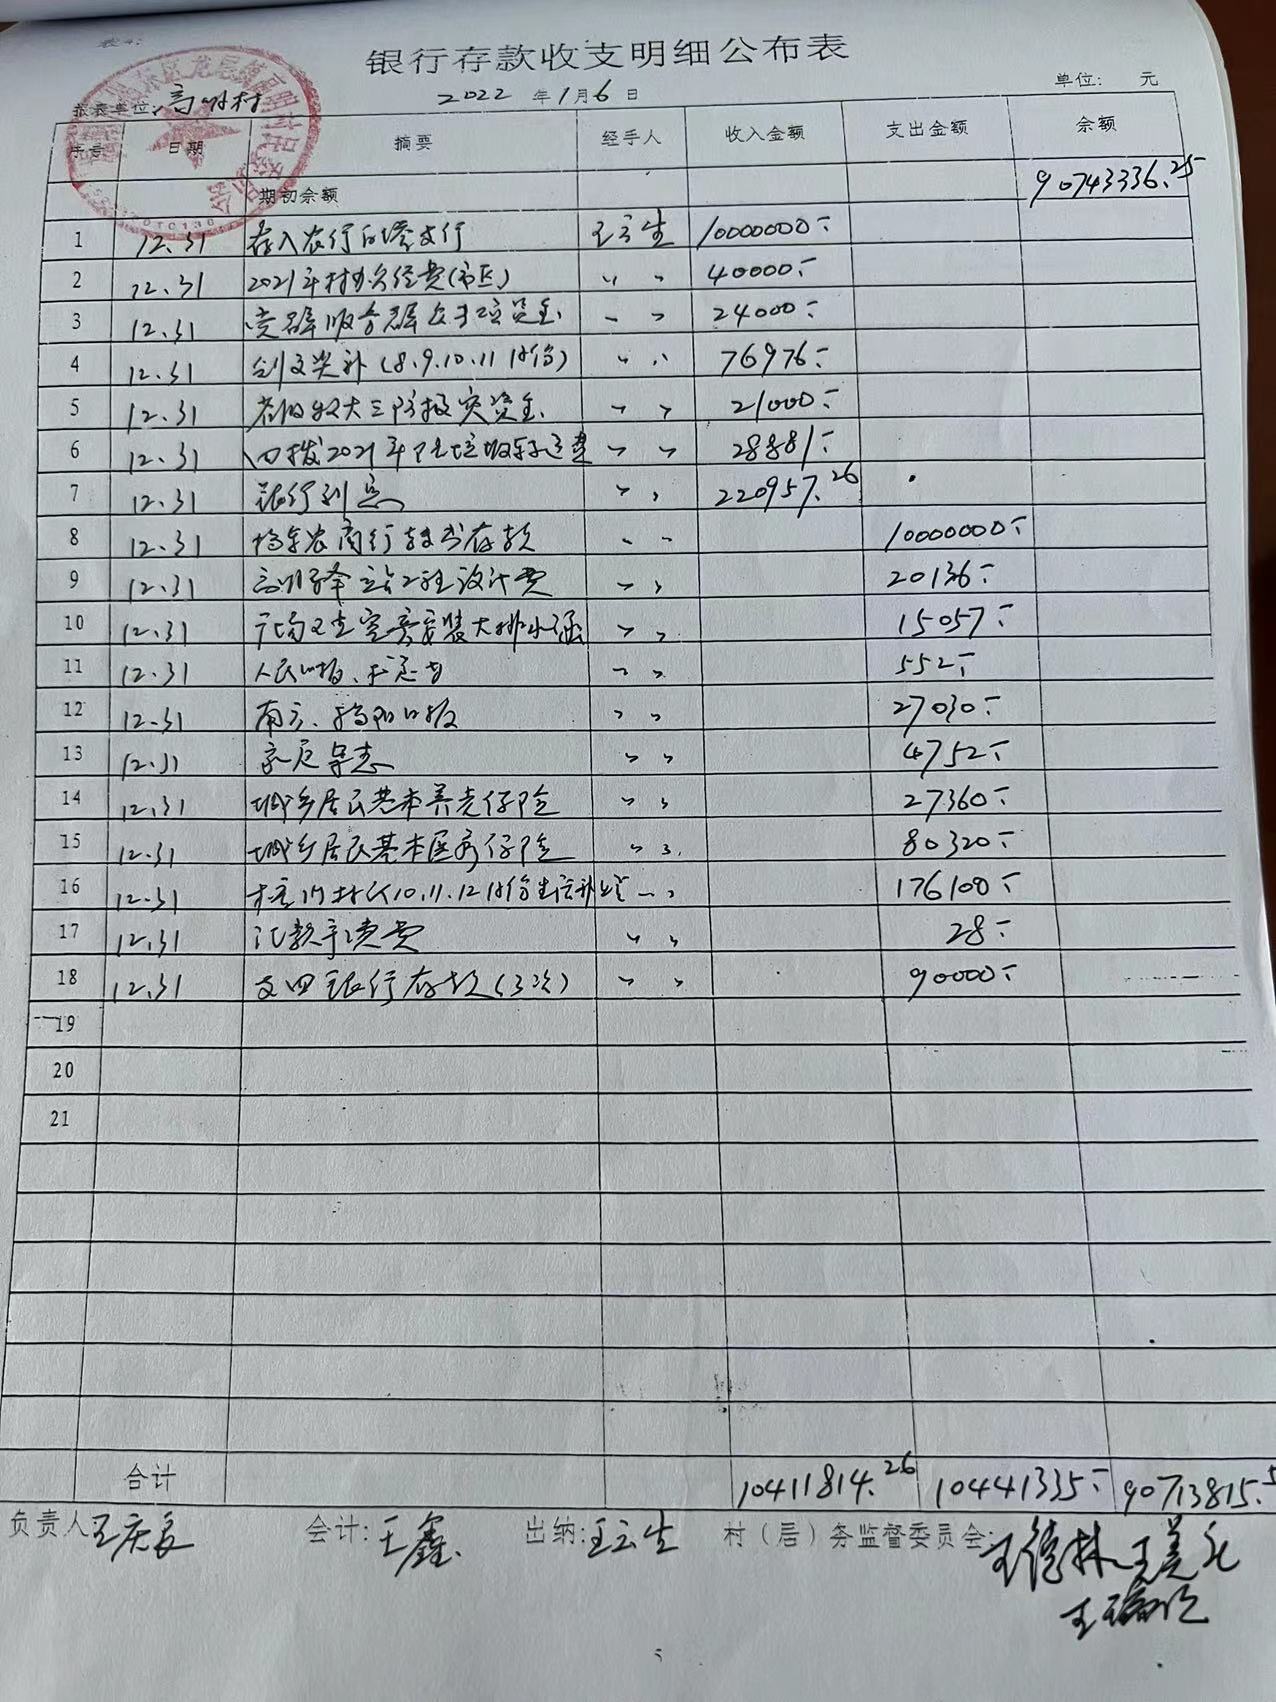 表4:
银行存款收支明细公布表
报表单位: 高明村 2022 年 1 月 6 日 单位: 元
序号 日期 摘要 经手人 收入金额 支出金额 余额
期初余额 90743336.25
1 12.31 存入农行 支行 王云生 10000000.-
2 12.31 2021年村办公经费(市区) 〃 〃 40000.-
3 12.31 党群服务群众专项资金 〃 〃 24000.-
4 12.31 创文奖补(8.9.10.11月份) 〃 〃 76976.-
5 12.31 三防 资金 〃 〃 21000.-
6 12.31 回拨2021年 垃圾转运费 〃 〃 28881.-
7 12.31 银行利息 〃 〃 220957.26
8 12.31 农商行 存款 〃 〃 10000000.-
9 12.31 工程设计费 〃 〃 20136.-
10 12.31 安装大排水涵 〃 〃 15057.-
11 12.31 人民日报、 〃 〃 552.-
12 12.31 南方、揭阳日报 〃 〃 27030.-
13 12.31 〃 〃 4752.-
14 12.31 城乡居民基本养老保险 〃 〃 27360.-
15 12.31 城乡居民基本医疗保险 〃 〃 80320.-
16 12.31 10.11.12月份生活补贴 〃 〃 176100.-
17 12.31 汇款手续费 〃 〃 28.-
18 12.31 支回银行存款(3次) 〃 〃 90000.-
19
20
21
合计 10411814.26 10441335.- 90713815.5
负责人 王庆 会计: 王鑫 出纳: 王云生 村（居）务监督委员会: 王德林 王美
王